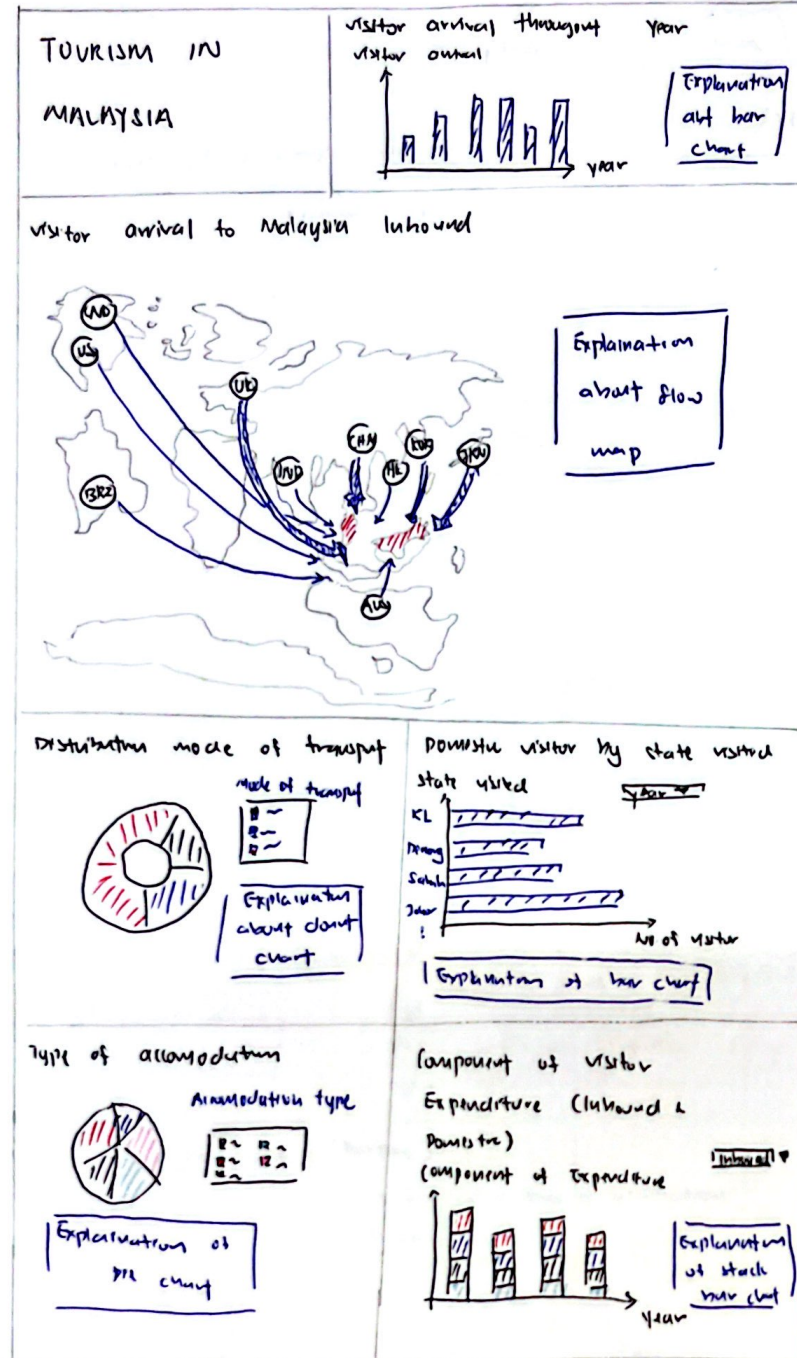 TOURISM IN
MALAYSIA
visitor arrival througout year
visitor
year
Explanation
abt bar
chart
visitor arrival to Malaysia Inbound
CND
US
UK
BRZ
IND
CHN
HK
AUS
Explaination
about flow
map
Distribution mode of transport
mode of transport
Explaination
about donut
chart
Domestic visitor by state visited
state visited
year
KL
Penang
Sabah
Johor
No of visitor
Explanation of bar chart
Type of accomodation
Accomodation type
Explaination of
pie chart
Component of visitor
Expenditure (Inbound &
Domestic)
Component of Expenditure
Inbound
year
Explanation
of stack
bar chart